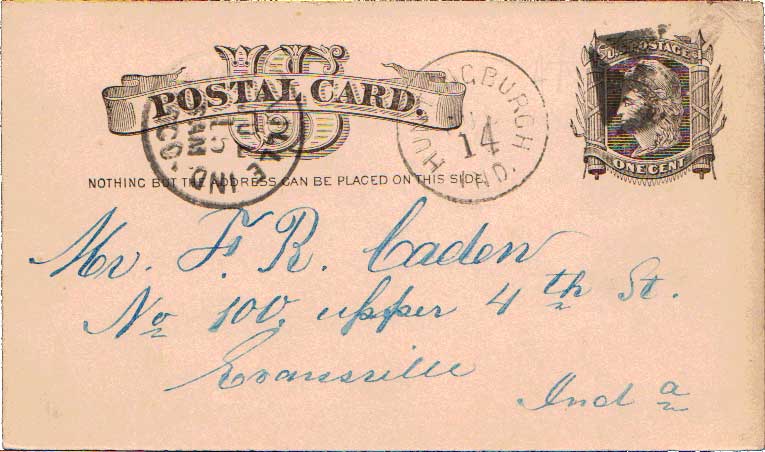 US
POSTAL CARD.
U.S. POSTAGE
ONE CENT
HUNTINGBURGH IND.
14
NOTHING BUT THE ADDRESS CAN BE PLACED ON THIS SIDE.
Mr. F. R. Caden
No 100, upper 4th St.
Evansville
Inda